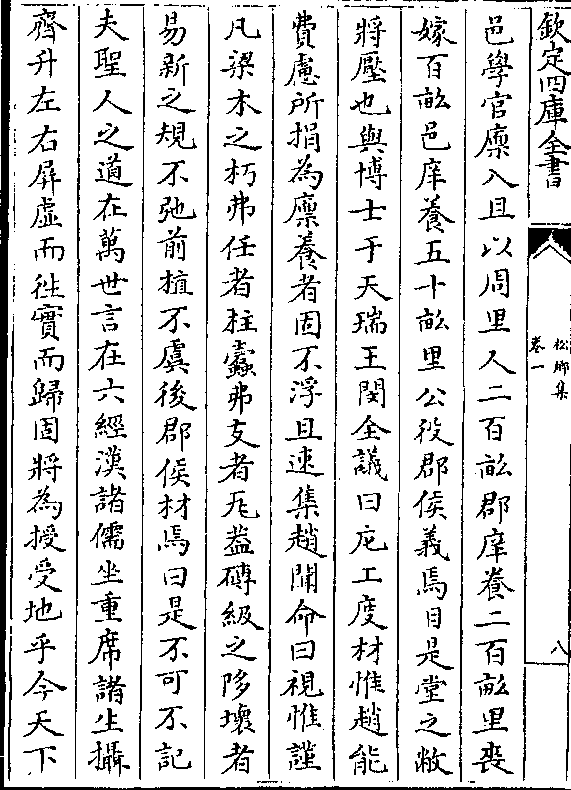 欽定四庫全書
松鄉集
卷一
八
邑學官廪入且以周里人二百畝郡庠養二百畝里喪
嫁百畝邑庠養五十畝里公役郡侯義焉目是堂之敝
將壓也與博士于天瑞王閔全議曰庀工度材惟趙能
費慮所捐為廪養者固不浮且速集趙聞命曰視惟謹
凡梁木之朽弗任者柱蠧弗支者瓦葢磚級之陊壞者
易新之規不弛前植不虞後郡侯材焉曰是不可不記
夫聖人之道在萬世言在六經漢諸儒坐重席諸生攝
齊升左右屏虚而徃實而歸固將為授受地乎今天下